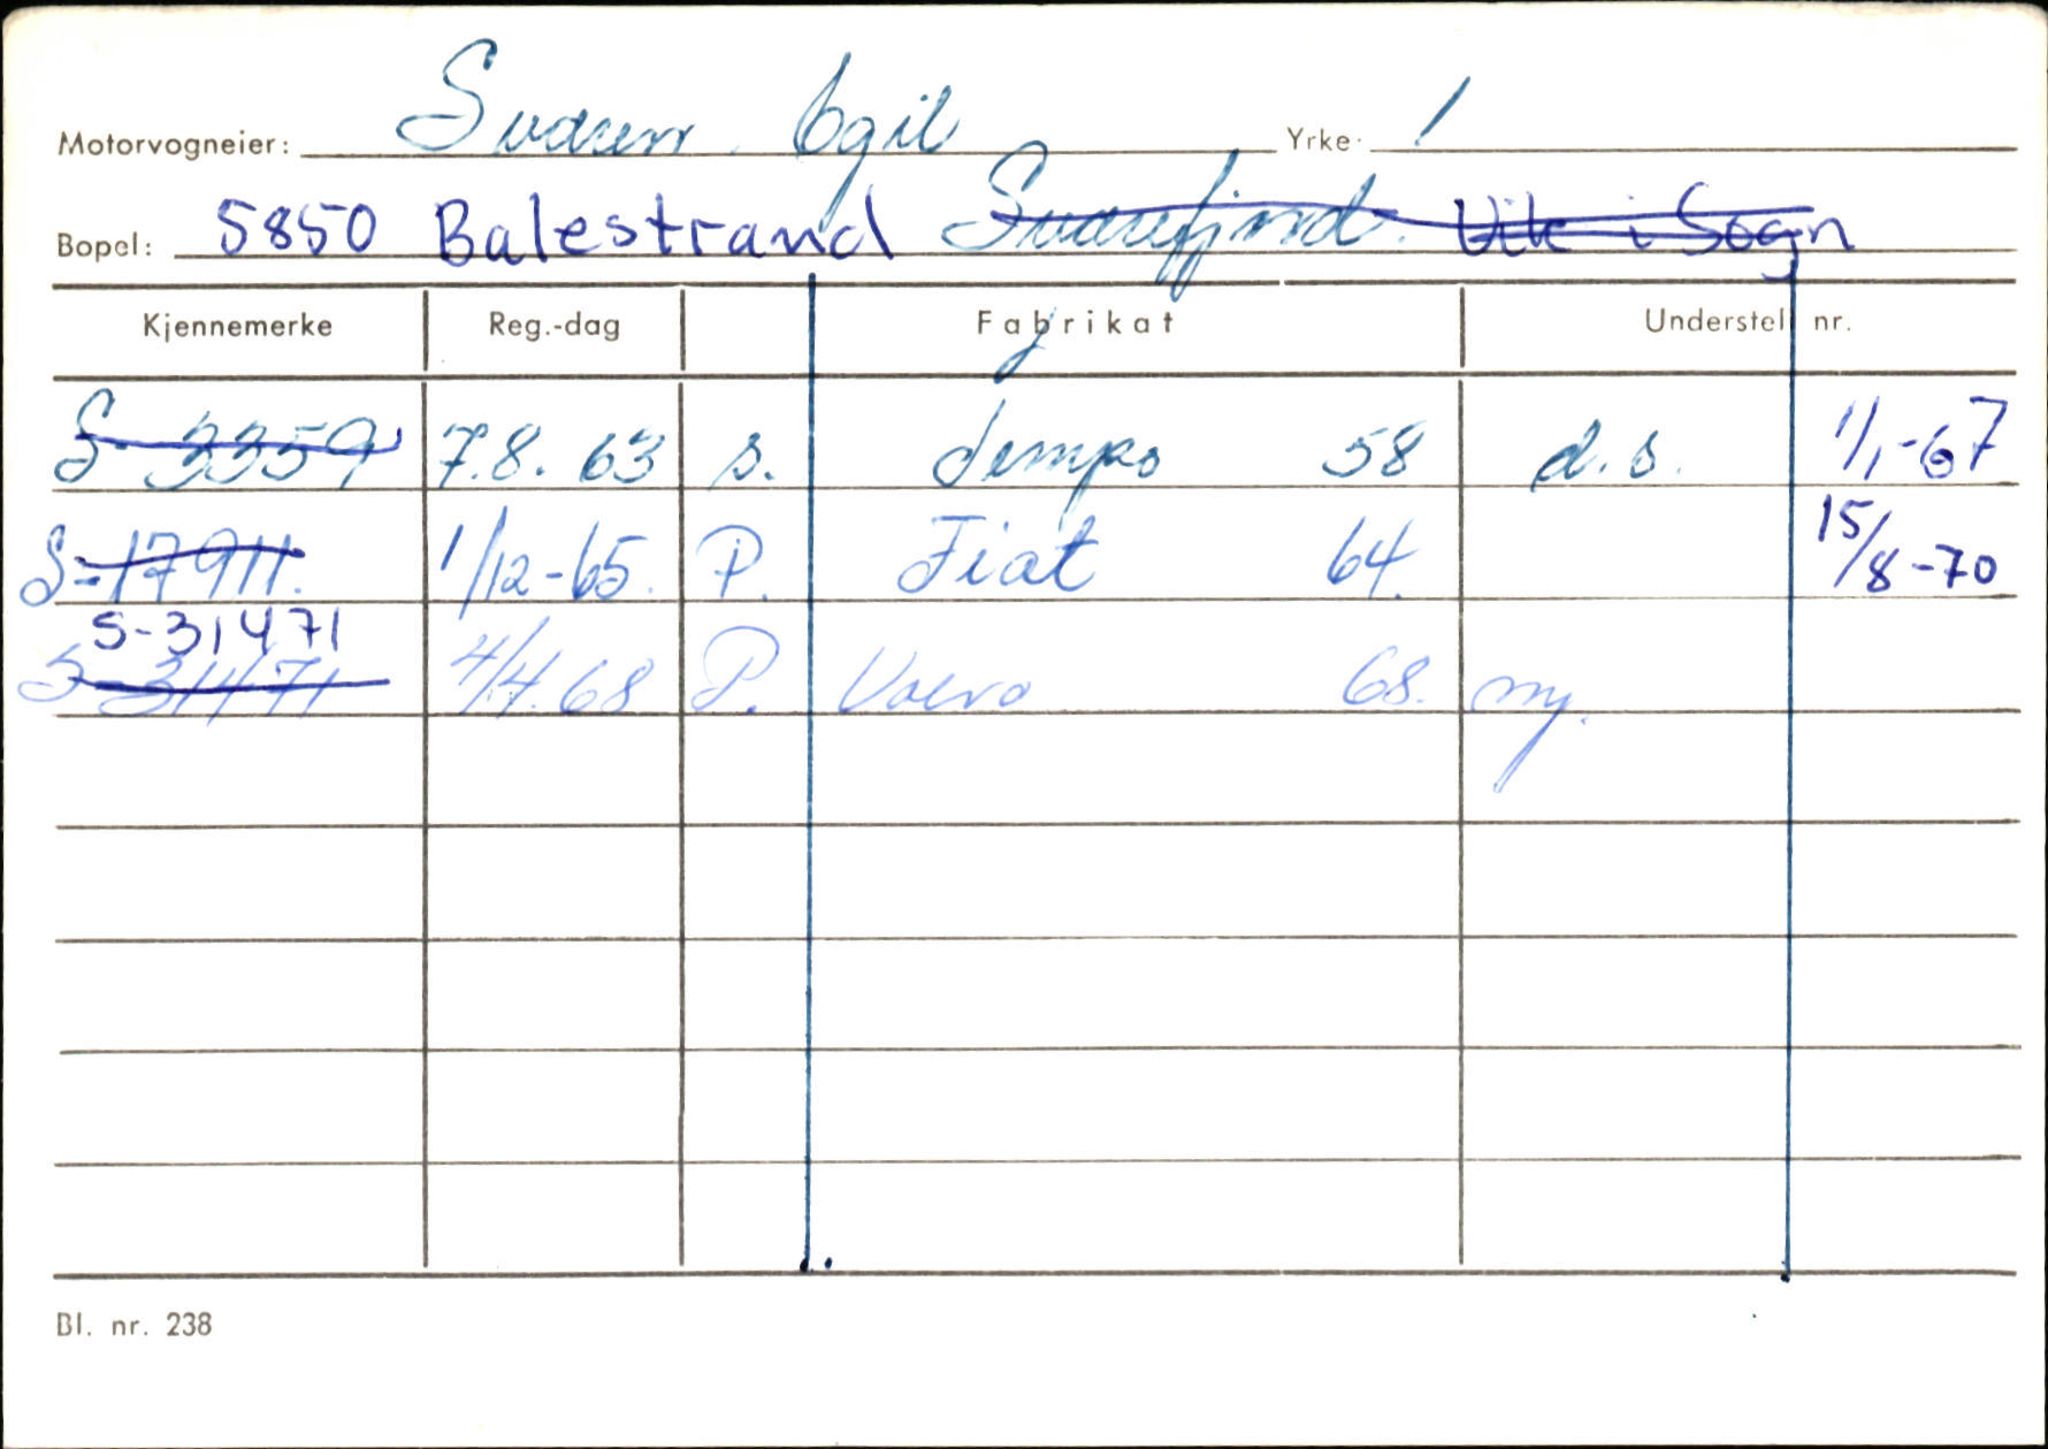 Motorvogneier: Svaren Egil Yrke: /
Bopel: 5850 Balestrand Svarefjord. Vik i Sogn
Kjennemerke Reg.-dag Fabrikat Understell nr.
S-3359 7.8. 63 s. Tempo 58 d.s. 1/1-67
S-17911. 1/12-65. P. Fiat 64. 15/8-70
S-31471
S-31471 4/4.68 P. Volvo 68. ny.
Bl. nr. 238